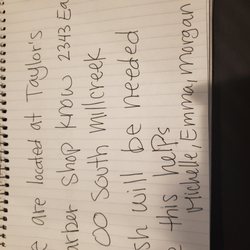 are located at Taylor's
Shop Know 2343 Ea
00 South millcreek
will be needed
this helps
Michelle, Emma, morgan